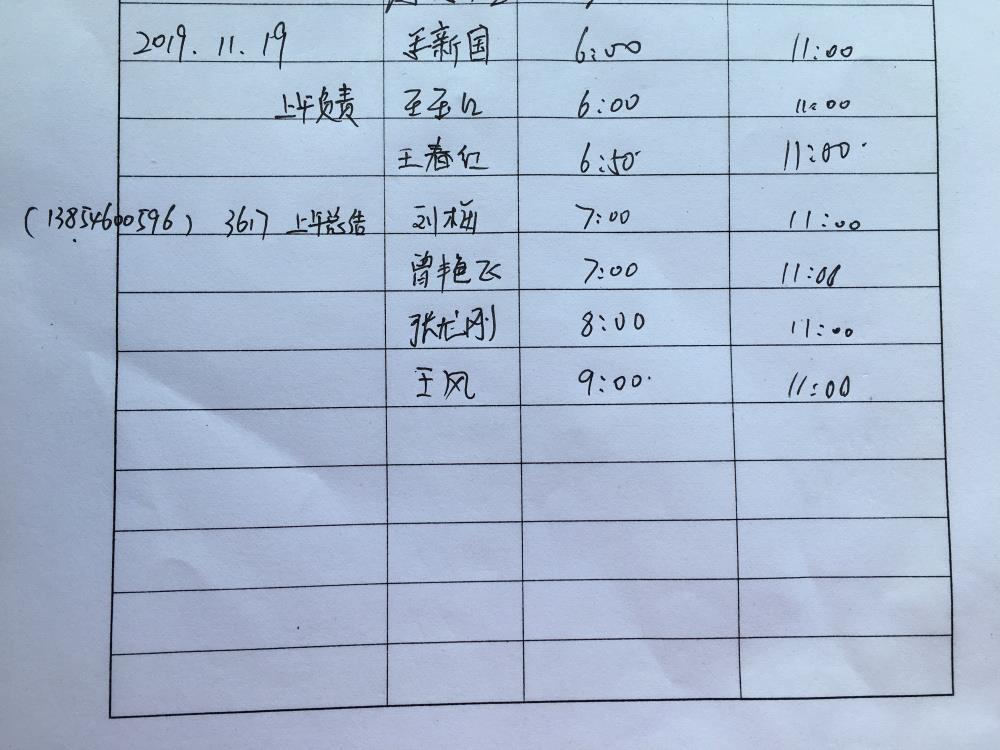 2019.11.19 王新国 6:00 11:00
上午负责 王玉红 6:00 11:00
王春红 6:50 11:00
(13854600596) 3617 上午总结 刘梅 7:00 11:00
曾艳飞 7:00 11:00
张龙刚 8:00 11:00
王风 9:00 11:00